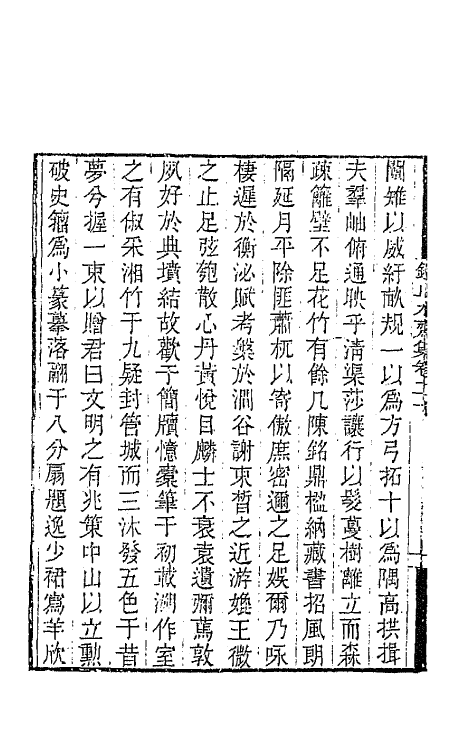 闢雉以威紆畝規一以為方弓拓十以為隅高拱揖
夫羣岫俯通映乎清渠莎讓行以髮蔓樹離立而森
疎籬壁不足花竹有餘几陳銘鼎檻納藏書招風明
隔延月平除匪蕭杌以寄傲庶密邇之足娛爾乃咏
棲遲於衡泌賦考槃於澗谷謝東晳之近游嬔王微
之止足弦匏散心丹黃悅目麟士不衰袁遺彌篤敦
夙好於典墳結故歡于簡牘憶橐筆于初載溯作室
之有俶采湘竹于九疑封管城而三沐發五色于昔
夢兮握一束以贈君曰文明之有兆策中山以立勳
破史籀為小篆摹落翮于八分扇題逸少裙寫羊欣